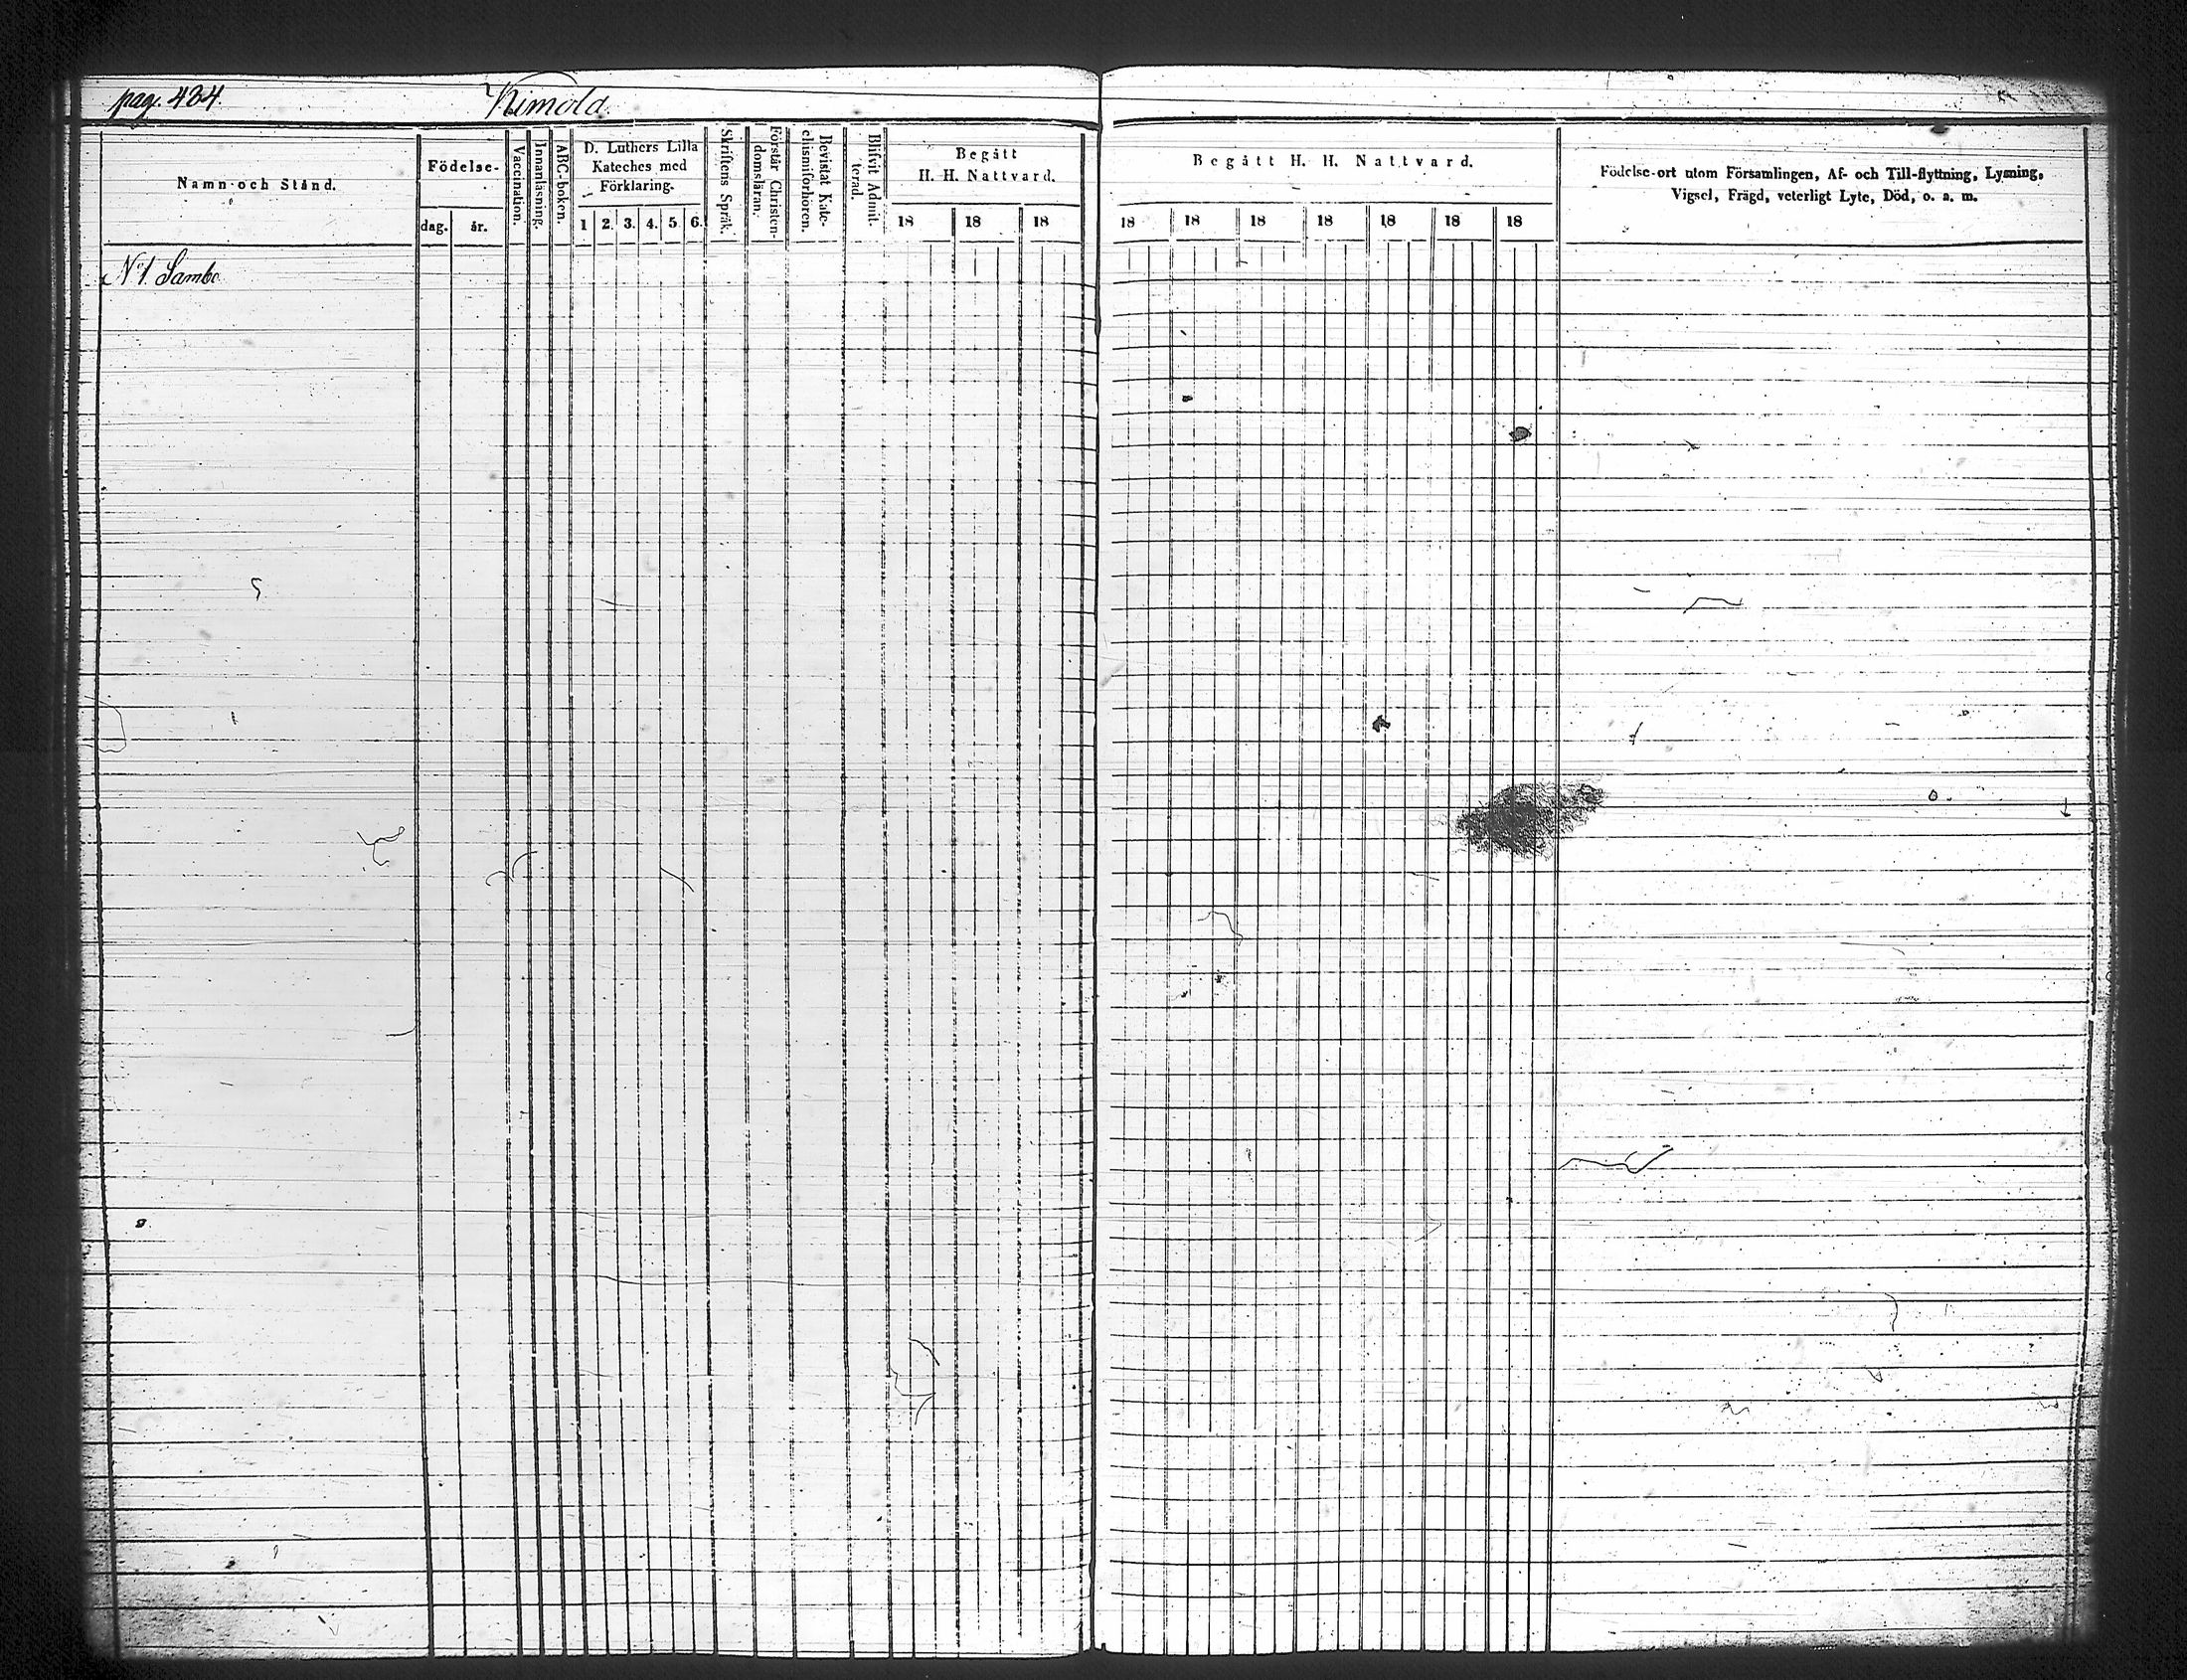 pag. 434.
Kimola
Namn och Stånd.
Födelse-
dag.
år.
Vaccination.
Innanläsning.
ABC-boken.
D. Luthers Lilla
Kateches med
Förklaring.
1 2. 3. 4. 5. 6.
Skriftens Språk.
Förstår Christen-
domsläran.
Bevistat Kate-
chismiförhören.
Blifvit Admit-
terad.
Begått
H. H. Nattvard.
18 18 18
Begått H. H. Nattvard.
18 18 18 18 18 18 18
Födelse-ort utom Församlingen, Af- och Till-flyttning, Lysning,
Vigsel, Frägd, veterligt Lyte, Död, o. s. m.
N:o 1 Sambo